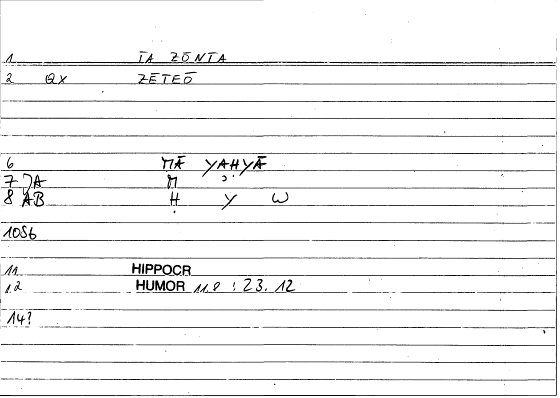 1 TA ZŌNTA
2 QX ZĒTEŌ
6 MĀ YAHYĀ
7 JA M
8 AB Ḥ Y W
10S6
11 HIPPOCR
12 HUMOR 11.9 : 23.12
14?